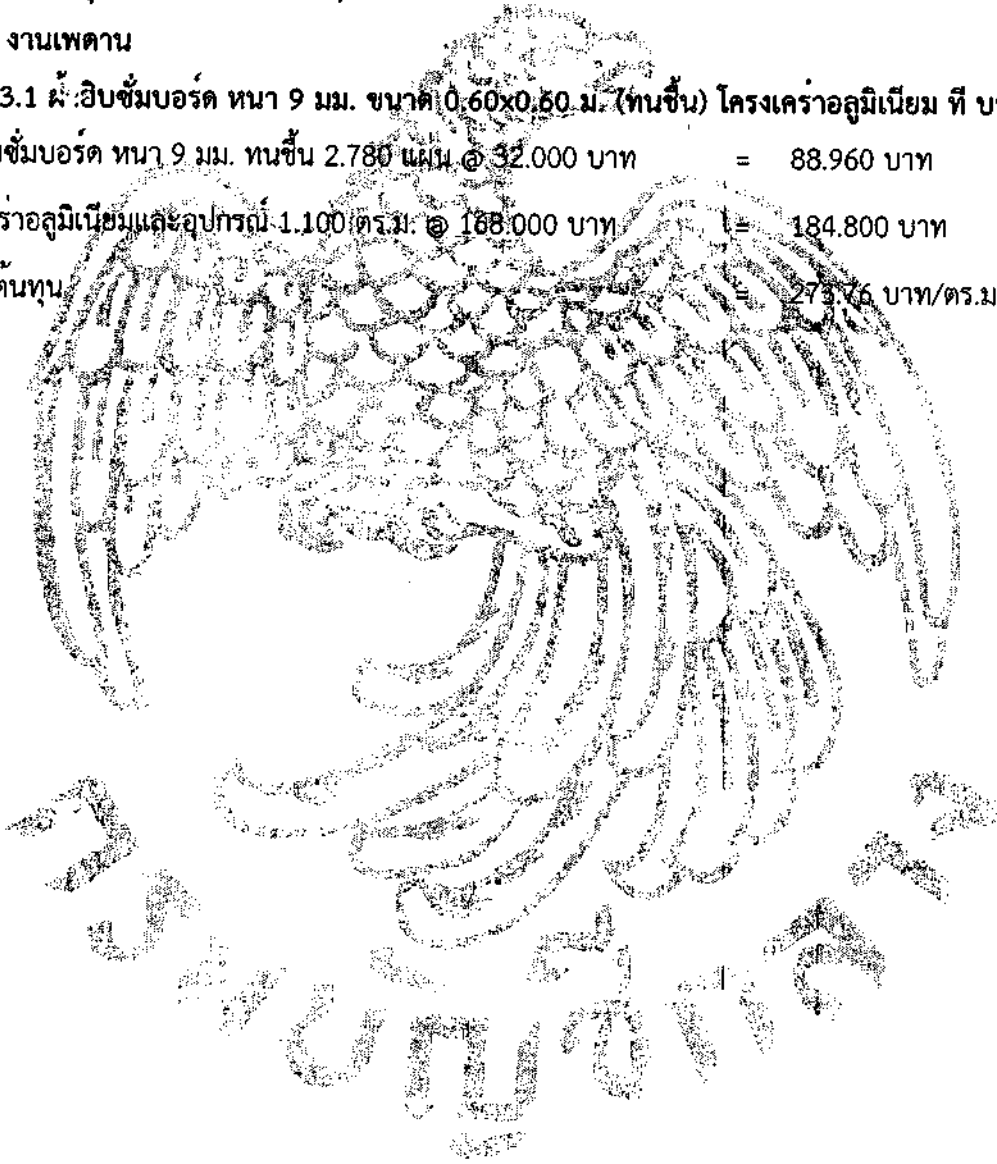 งานเพดาน
3.1 ฝ้ :ยิบซั่มบอร์ด หนา 9 มม. ขนาด 0.60x0.60 ม. (ทนชื้น) โครงเคร่าอลูมิเนียม ที
ซั่มบอร์ด หนา 9 มม. ทนชื้น 2.780 แผ่น @ 32.000 บาท = 88.960 บาท
ร่าอลูมิเนียมและอุปกรณ์ 1.100 ตร.ม. @ 168.000 บาท = 184.800 บาท
ต้นทุน = 273.76 บาท/ตร.ม
กรมชลประทาน